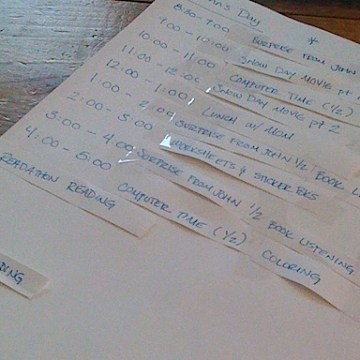 Day
8:30 - 9:00 SURPRISE FROM JOHN
9:00 - 10:00 SNOW DAY MOVIE pt
10:00 - 11:00 COMPUTER TIME (1/2)
11:00 - 12:00 SNOW DAY MOVIE pt 2
12:00 - LUNCH w/ MOM
1:00 - SURPRISE FROM JOHN 1/2 / BOOK
2:00 - 3:00 & STICKER BKS
3:00 - 4:00 SURPRISE FROM JOHN 1/2 BOOK LISTENING
4:00 - 5:00 COMPUTER TIME (1/2) / COLORING
READATHON READING